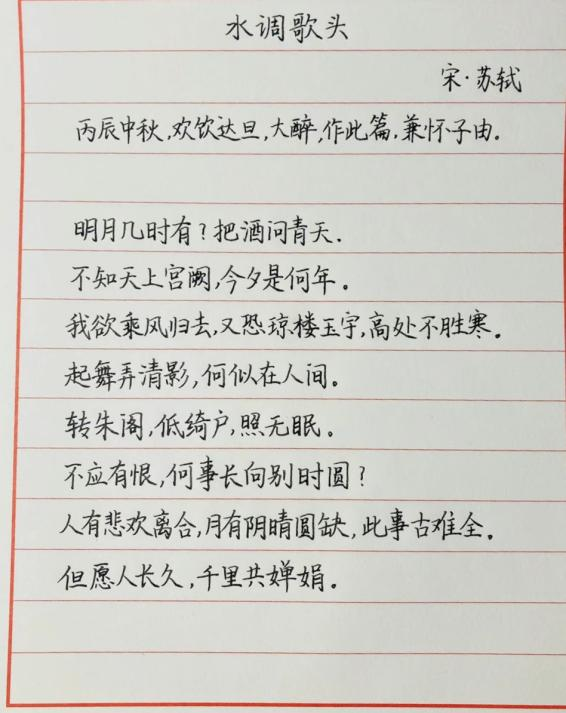 水调歌头
宋·苏轼
丙辰中秋,欢饮达旦,大醉,作此篇,兼怀子由.
明月几时有?把酒问青天.
不知天上宫阙,今夕是何年。
我欲乘风归去,又恐琼楼玉宇,高处不胜寒。
起舞弄清影,何似在人间。
转朱阁,低绮户,照无眠。
不应有恨,何事长向别时圆?
人有悲欢离合,月有阴晴圆缺,此事古难全。
但愿人长久,千里共婵娟。